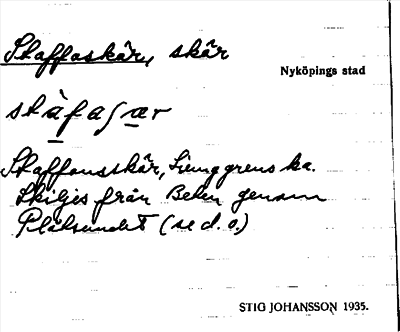 Staffaskär, skär
Nyköpings stad
stàfaʃær
Staffansskär, Ljunggrens ka.
Skiljes från Beten genom
Plåtsundet (se d. o.)
STIG JOHANSSON 1935.